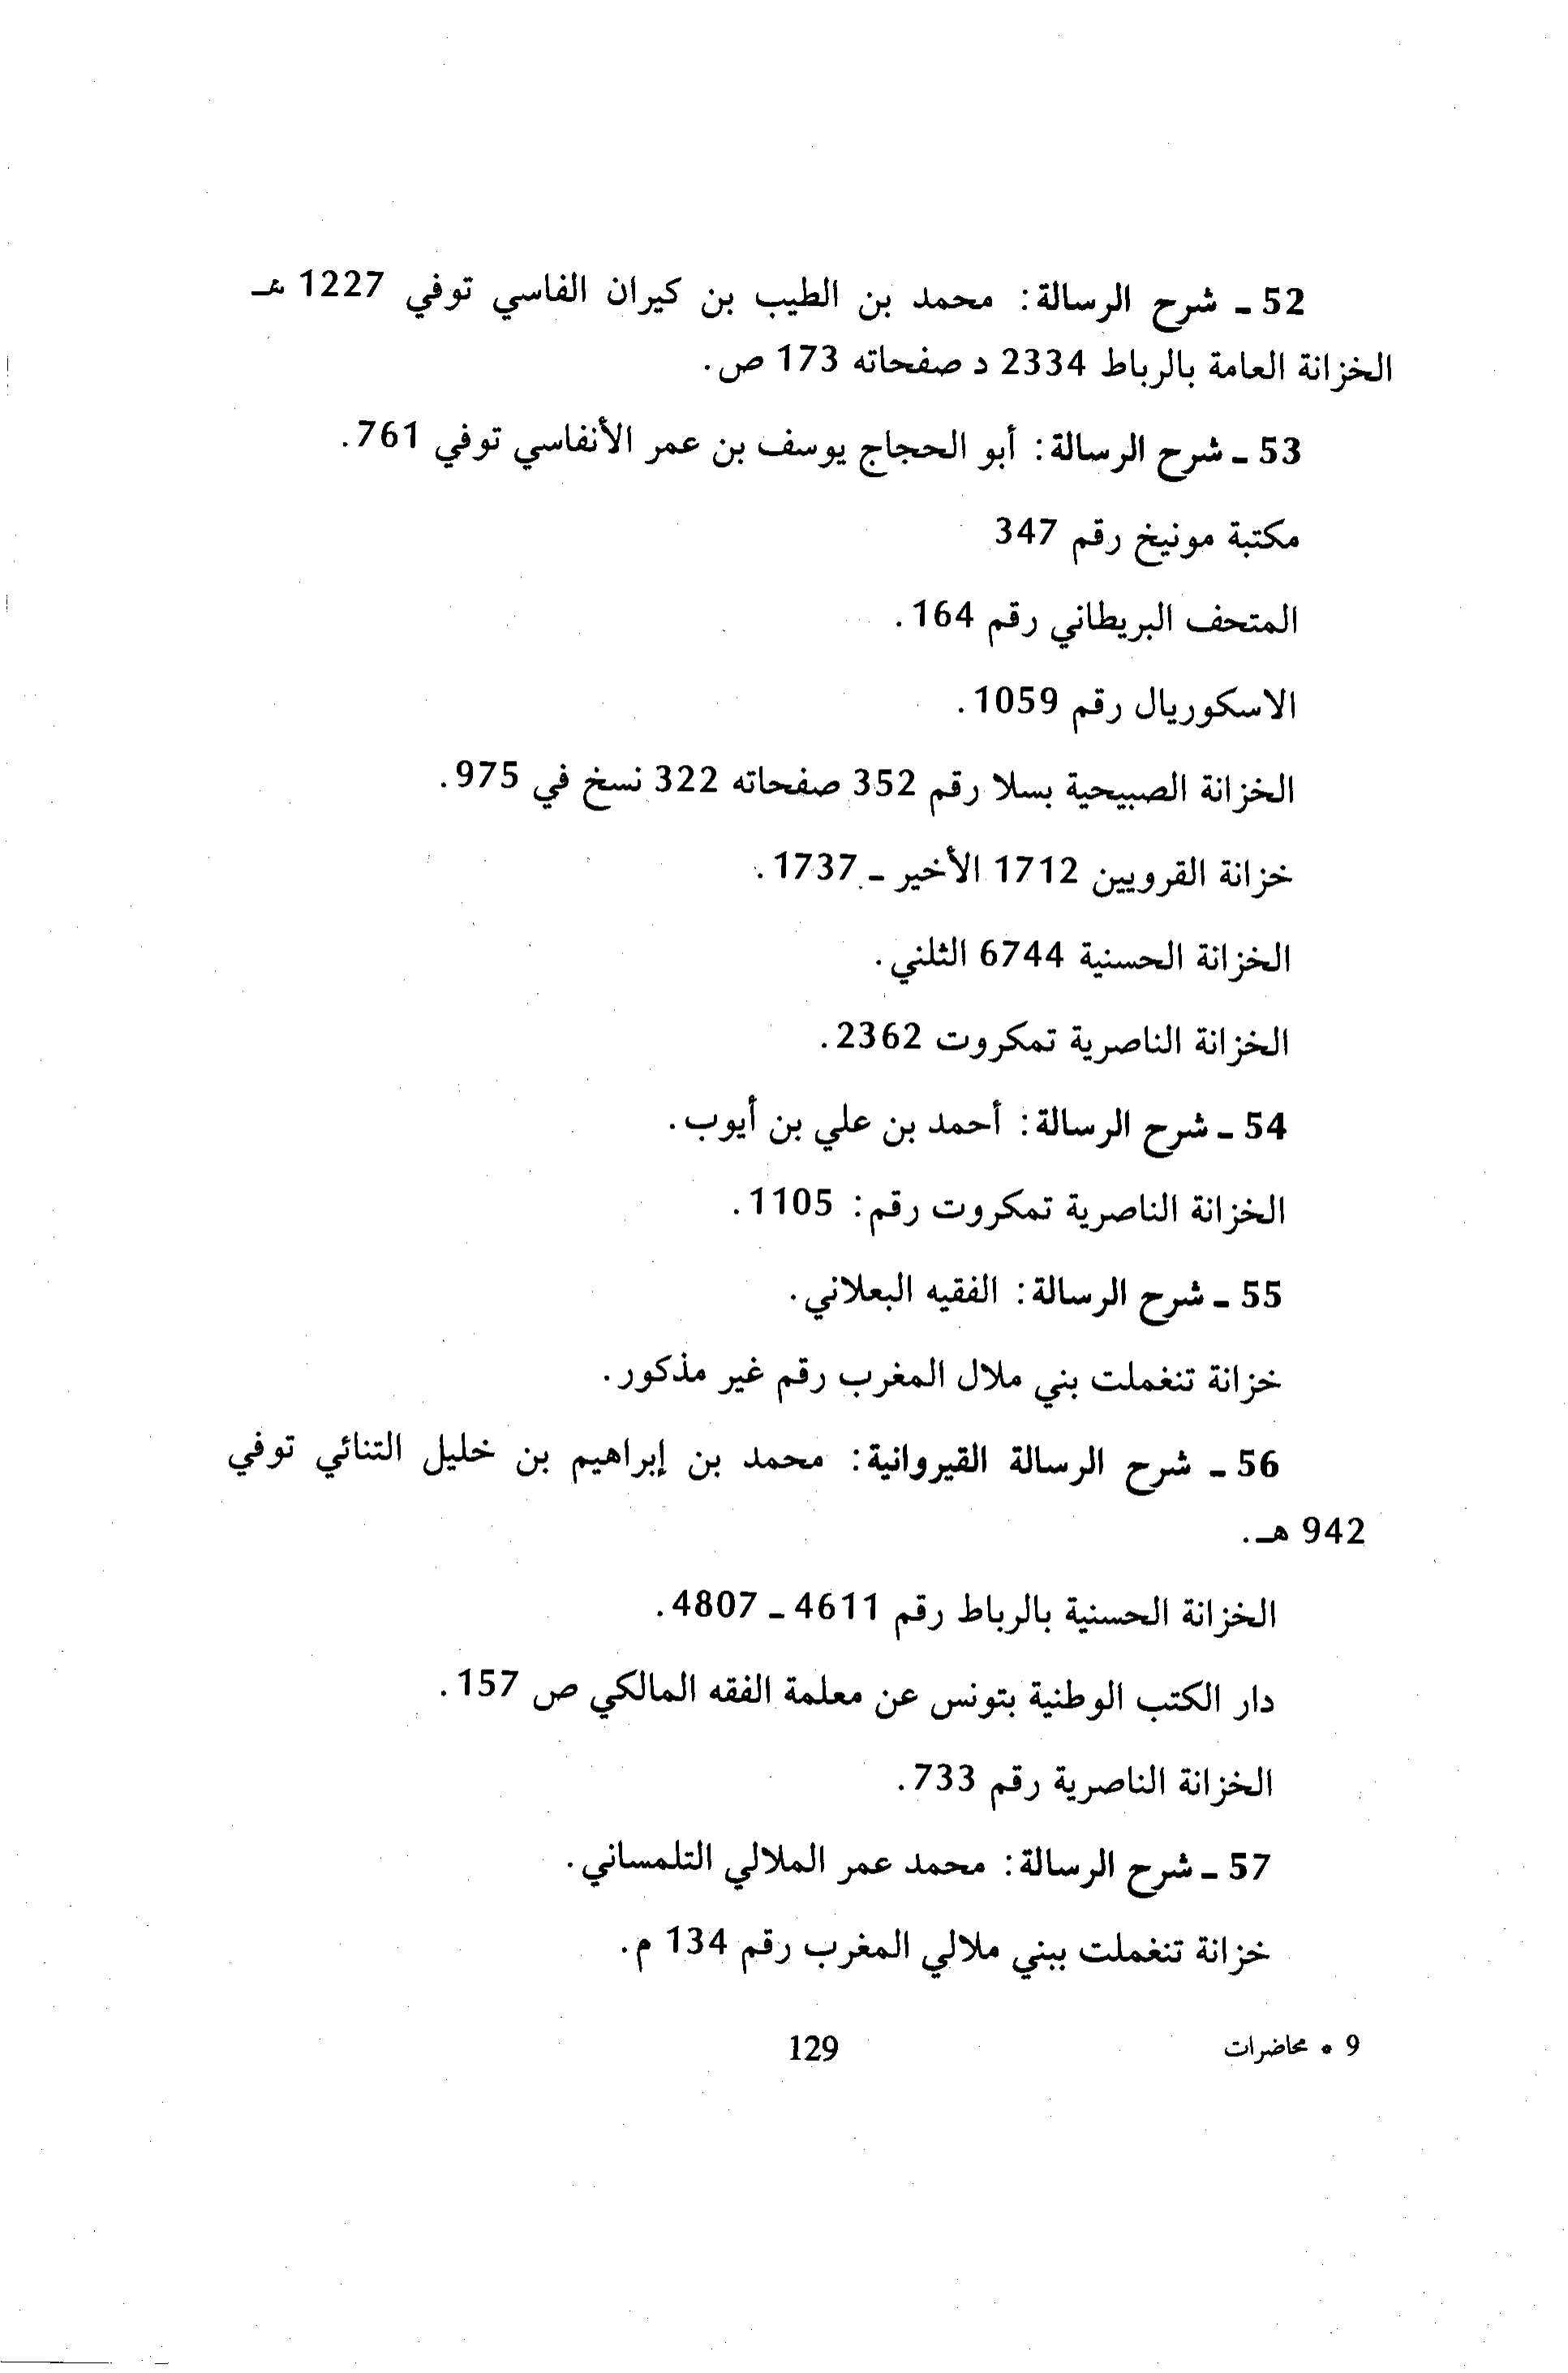 52 ـ شرح الرسالة: محمد بن الطيب بن كيران الفاسي توفي 1227 هـ
الخزانة العامة بالرباط 2334 د صفحاته 173 ص.
53 ـ شرح الرسالة: أبو الحجاج يوسف بن عمر الأنفاسي توفي 761.
مكتبة مونيخ رقم 347
المتحف البريطاني رقم 164.
الاسكوريال رقم 1059.
الخزانة الصبيحية بسلا رقم 352 صفحاته 322 نسخ في 975.
خزانة القرويين 1712 الأخير ـ 1737.
الخزانة الحسنية 6744 الثلني.
الخزانة الناصرية تمكروت 2362.
54 ـ شرح الرسالة: أحمد بن علي بن أيوب.
الخزانة الناصرية تمكروت رقم: 1105.
55 ـ شرح الرسالة: الفقيه البعلاني.
خزانة تنغملت بني ملال المغرب رقم غير مذكور.
56 ـ شرح الرسالة القيروانية: محمد بن إبراهيم بن خليل التنائي توفي
942 هـ.
الخزانة الحسنية بالرباط رقم 4611 ـ 4807.
دار الكتب الوطنية بتونس عن معلمة الفقه المالكي ص 157.
الخزانة الناصرية رقم 733.
57 ـ شرح الرسالة: محمد عمر الملالي التلمساني.
خزانة تنغملت ببني ملالي المغرب رقم 134 م.
9 • محاضرات
129